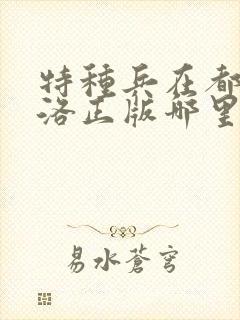 特種兵在都
洛正版哪里
易水蒼穹